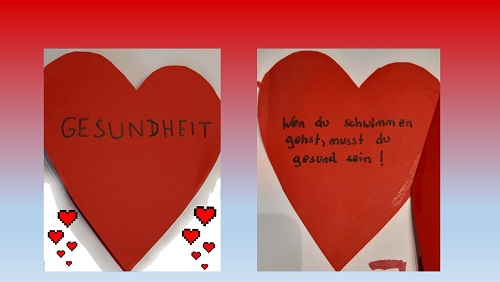 GESUNDHEIT
Wen du schwimmen
gehst, musst du
gesund sein!